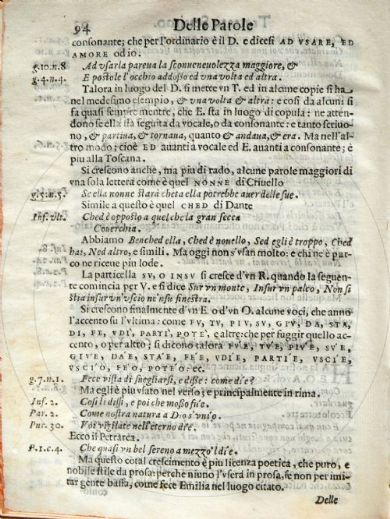 94 Delle Parole
consonante; che per l'ordinario è il D. e dicesi AD VSARE, ED
AMORE odio.
g.10.n.8 Ad vsarla pareua la sconueneuolezza maggiore, &
g.4.n.4. E postole l'occhio addosso ed vna volta ed altra.
Talora in luogo del D. si mette vn T. ed in alcune copie si ha
nel medesimo esempio, & vna volta & altra: e così da alcuni si
fa quasi sempre mentre, che E. sta in luogo di copula: ne at-
tendono se ella ità seguita da vocalo, o da consonante: e tanto scriuo
no, & partiua, & tornaua, quanto & andaua, & era. Ma nell'al-
tro modo; cioè ED auanti a vocale ed E. auanti a consonante; è
più alla Toscana.
Si crescono anche, ma più di rado, alcune parole maggiori di
vna sola lettera com'è quel NONNE di Criuello
g.3.n.5. Se ella nonne starà cheta ella potrebbe auer delle sue.
Simile a questo è quel CHED di Dante
Inf. vlt. Ched è opposto a quel che la gran secca
Couerchia.
Abbiamo Benched ella, Ched è nouello, Sed egli è troppo, Ched
hai, Ned altro, e simili. Ma oggi non s'vsan molto: e chi ne è par-
co ne riceue più lode.
La particella SV, O INSV si cresce d'vn R. quando la seguen-
te comincia per V. e si dice Sur vn monte, Insur vn palco, Non si
stra insur vn'vscio ne'nse finestra.
Si crescono finalmente d'vn E. o d'vn O. alcune voci, che anno
l'accento su l'vltima: come FV, TV, PIV, SV, GIV, DA, STA,
DI, FE, VDI, PARTI, POTE', e altre: che per fuggir quello ac-
cento, o per altro; si dicono talora FV'E, TV'E, PIV'E, SV'E,
GIV'E, DA'E, STA'E, FE'E, VDI'E, PARTI'E, VSCI'E,
VSCI'O, FE'O, POTE'O. &c.
g.7.n.1. Fece vista di suegliarsi, e disse: com e d'e?
Ma egli è più vsato nel verso; e principalmente in rima.
Inf. 2. Così li dissi, e poi che mosso fu'e.
Par. 2. Come nostra natura a Dio s'vnì'o.
Pur. 30. Voi vigilate nell'eterno dì'e.
Ecco il Petrarca.
P.1.c.4. Che quasi vn bel sereno a mezzo'l dì'e.
Ma questo cotal crescimento è più licenza poetica, che puro, e
nobile stile da prosa: perche niuno l'vserà in prosa, se non per imi-
tar gente bassa, come fece Emilia nel luogo citato.
Delle